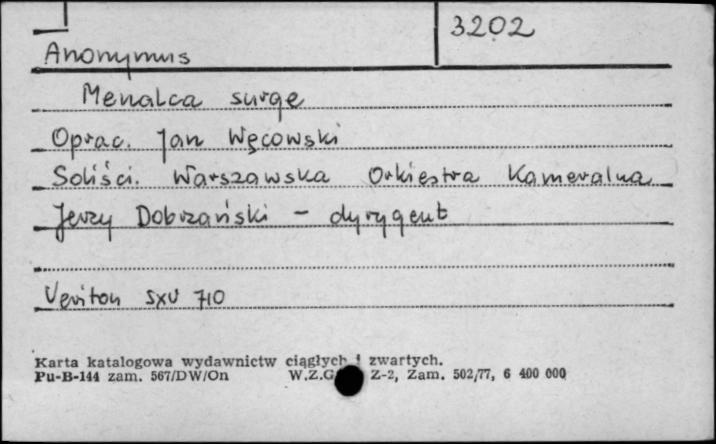 3202
Anonymus
Menalca surge
Oprac. Jan Węcowski
Soliści. Warszawska Orkiestra Kameralna
Jerzy Dobrzański - dyrygent
Veriton SXV 710
Karta katalogowa wydawnictw ciągłych i zwartych.
Pu-B-144 zam. 567/DW/On W.Z.G. Z-2, Zam. 502/77, 6 400 000